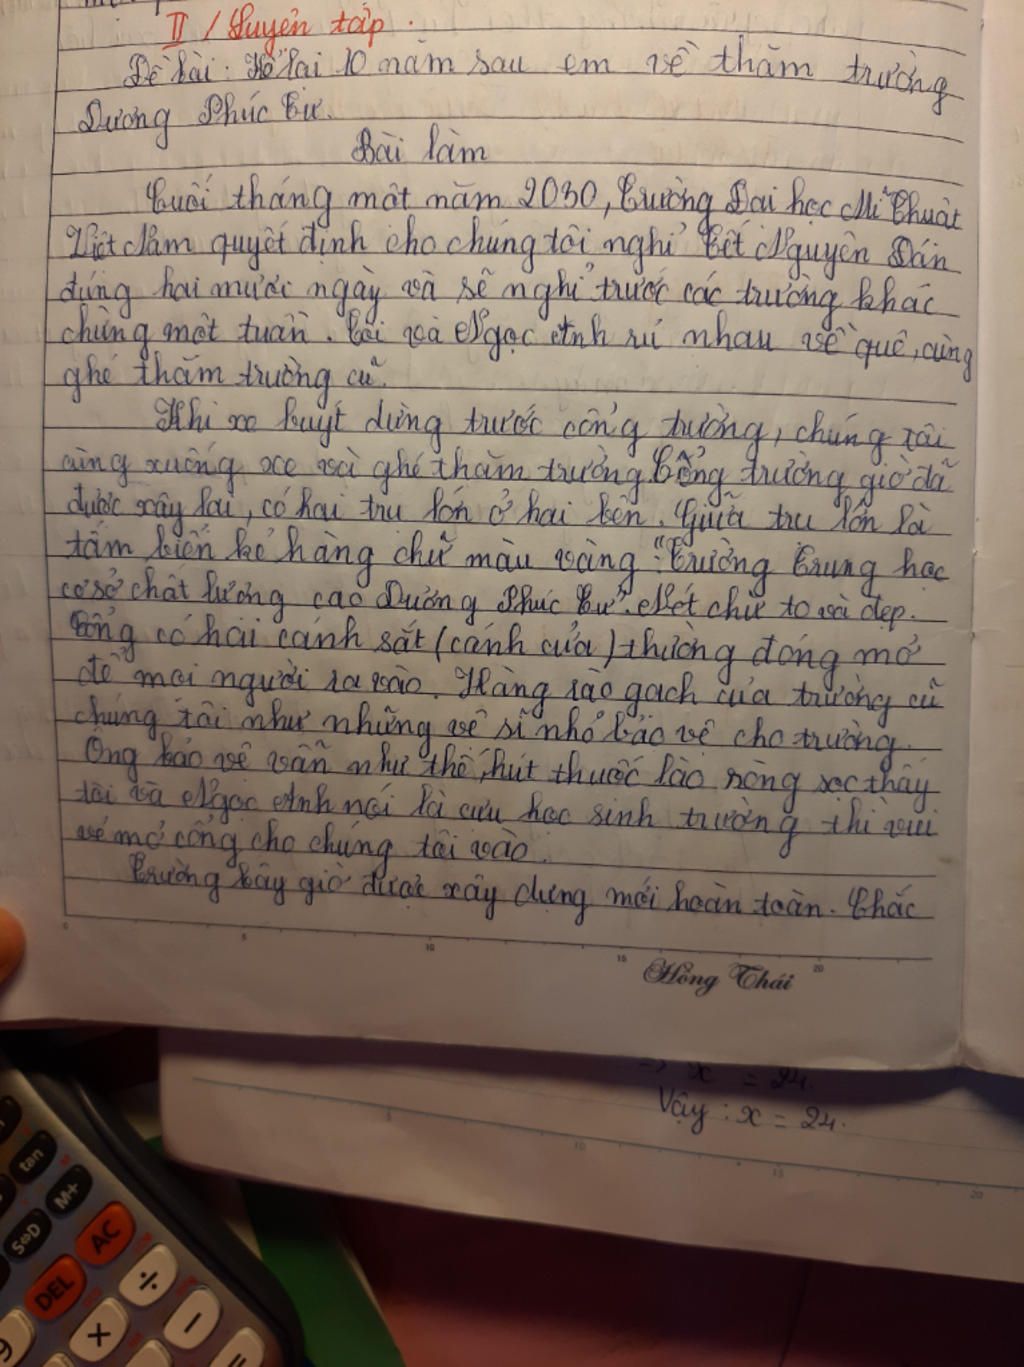 II / Luyện tập.
Đề bài: Kể lại 10 năm sau em về thăm trường
Dương Phúc Tư.
Bài làm
Cuối tháng một năm 2030, Trường Đại học Mĩ Thuật
Việt Nam quyết định cho chúng tôi nghỉ Tết Nguyên Đán
đúng hai mươi ngày và sẽ nghỉ trước các trường khác
chừng một tuần. Tôi và Ngọc Anh rủ nhau về quê, cùng
ghé thăm trường cũ.
Khi xe buýt dừng trước cổng trường, chúng tôi
cùng xuống xe và ghé thăm trường. Cổng trường giờ đã
được xây lại, có hai trụ lớn ở hai bên. Giữa trụ lớn là
tấm biển kẻ hàng chữ màu vàng "Trường Trung học
cơ sở chất lượng cao Dương Phúc Tư". Nét chữ to và đẹp.
Cổng có hai cánh sắt (cánh cửa) thường đóng mở
để mọi người ra vào. Hàng rào gạch của trường cũ
chúng tôi như những vệ sĩ nhỏ bảo vệ cho trường.
Ông bảo vệ vẫn như thế, hút thuốc lào sòng sọc thấy
tôi và Ngọc Anh nói là cựu học sinh trường thì vui
vẻ mở cổng cho chúng tôi vào.
Trường bây giờ được xây dựng mới hoàn toàn. Chắc
0 5 10 15 20
Hồng Thái
=> x = 24.
Vậy : x = 24.
5 10 15 20
tan
M+
S⇔D
AC
DEL
÷
9
×
−
=